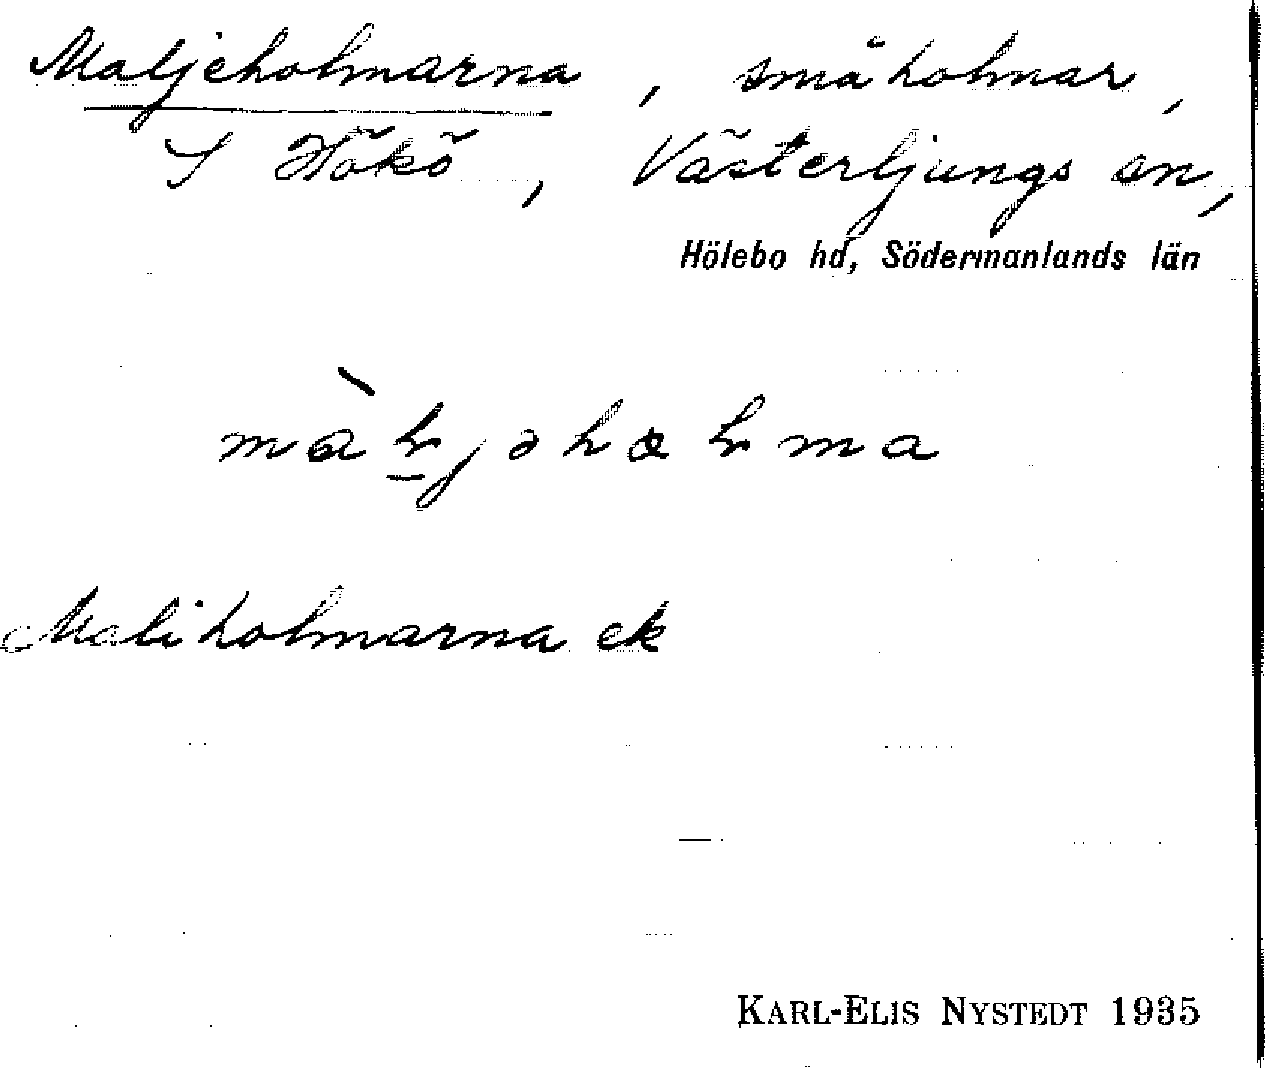 Maljeholmarna, småholmar,
S Hökö, Västerljungs sn,
Hölebo hd, Södermanlands län
Maliholmarna ek
KARL-ELIS NYSTEDT 1935